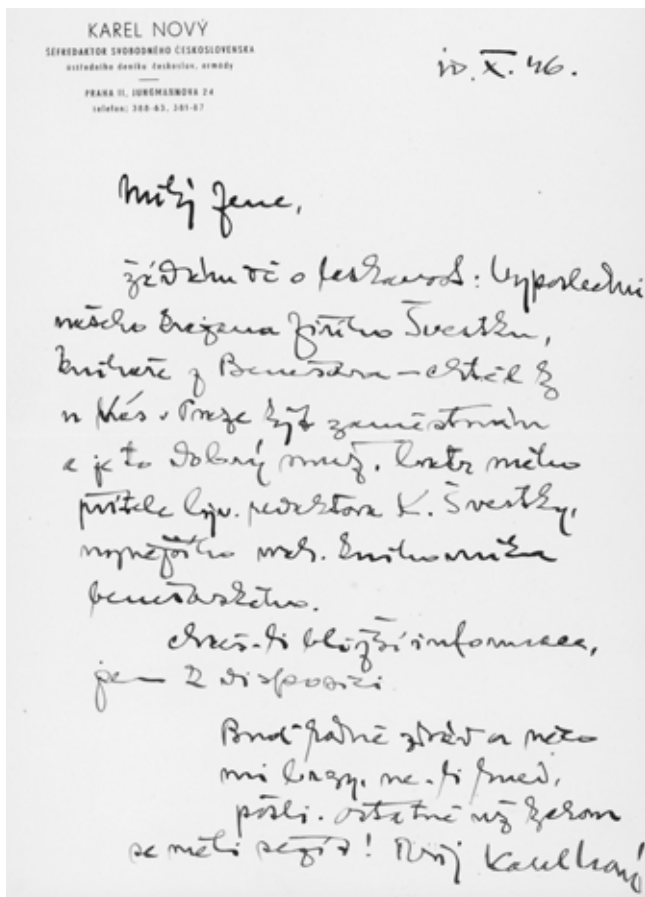 KAREL NOVÝ
ŠÉFREDAKTOR SVOBODNÉHO ČESKOSLOVENSKA
ústředního deníku českoslov. armády
PRAHA II, JUNGMANNOVA 24
telefon: 388-63, 381-87
10. X. 46.
Milý Jene,
žádám tě o laskavost: Vyposlechni
našeho krajana Jiřího Švestku,
knihaře z Benešova – chtěl by
u Vás v Praze být zaměstnán
a je to dobrý muž, bratr mého
přítele býv. redaktora K. Švestky,
nynějšího knihovníka
benešovského.
Chceš-li bližší informace,
jsem k disposici.
Buď hodně zdráv a něco
mi brzy, ne-li hned,
pošli. Ostatně už bychom
se měli sejít! Tvůj Karel Nový